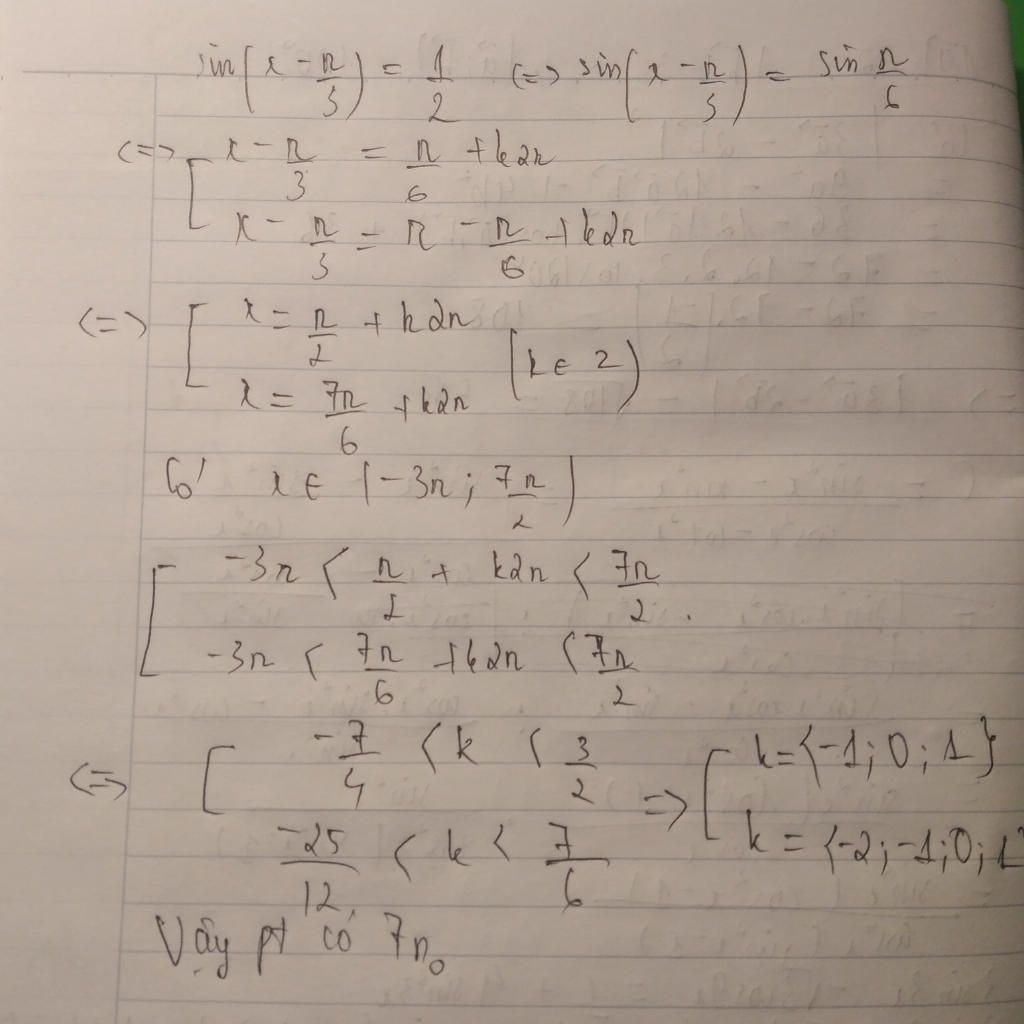 sin(x - π/3) = 1/2 <=> sin(x - π/3) = sin π/6
<=> [ x - π/3 = π/6 + k2π
x - π/3 = π - π/6 + k2π
<=> [ x = π/2 + k2π
(k ∈ Z)
x = 7π/6 + k2π
Có x ∈ (-3π; 7π/2)
[ -3π < π/2 + k2π < 7π/2.
-3π < 7π/6 + k2π < 7π/2
<=> [ -7/4 < k < 3/2 => [ k = {-1; 0; 1}
-25/12 < k < 7/6 k = {-2; -1; 0; 1
Vậy pt có 7n₀